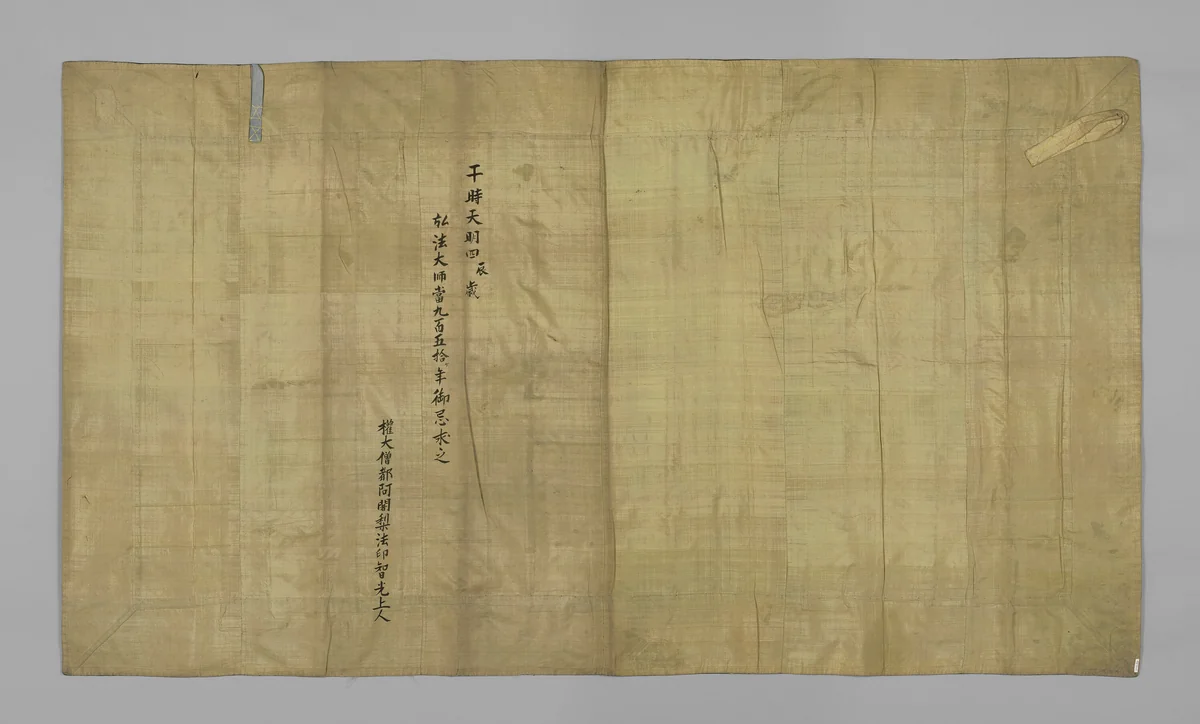 干時天明四辰歳
弘法大師當九百五拾年御忌求之
權大僧都阿闍梨法印智光上人